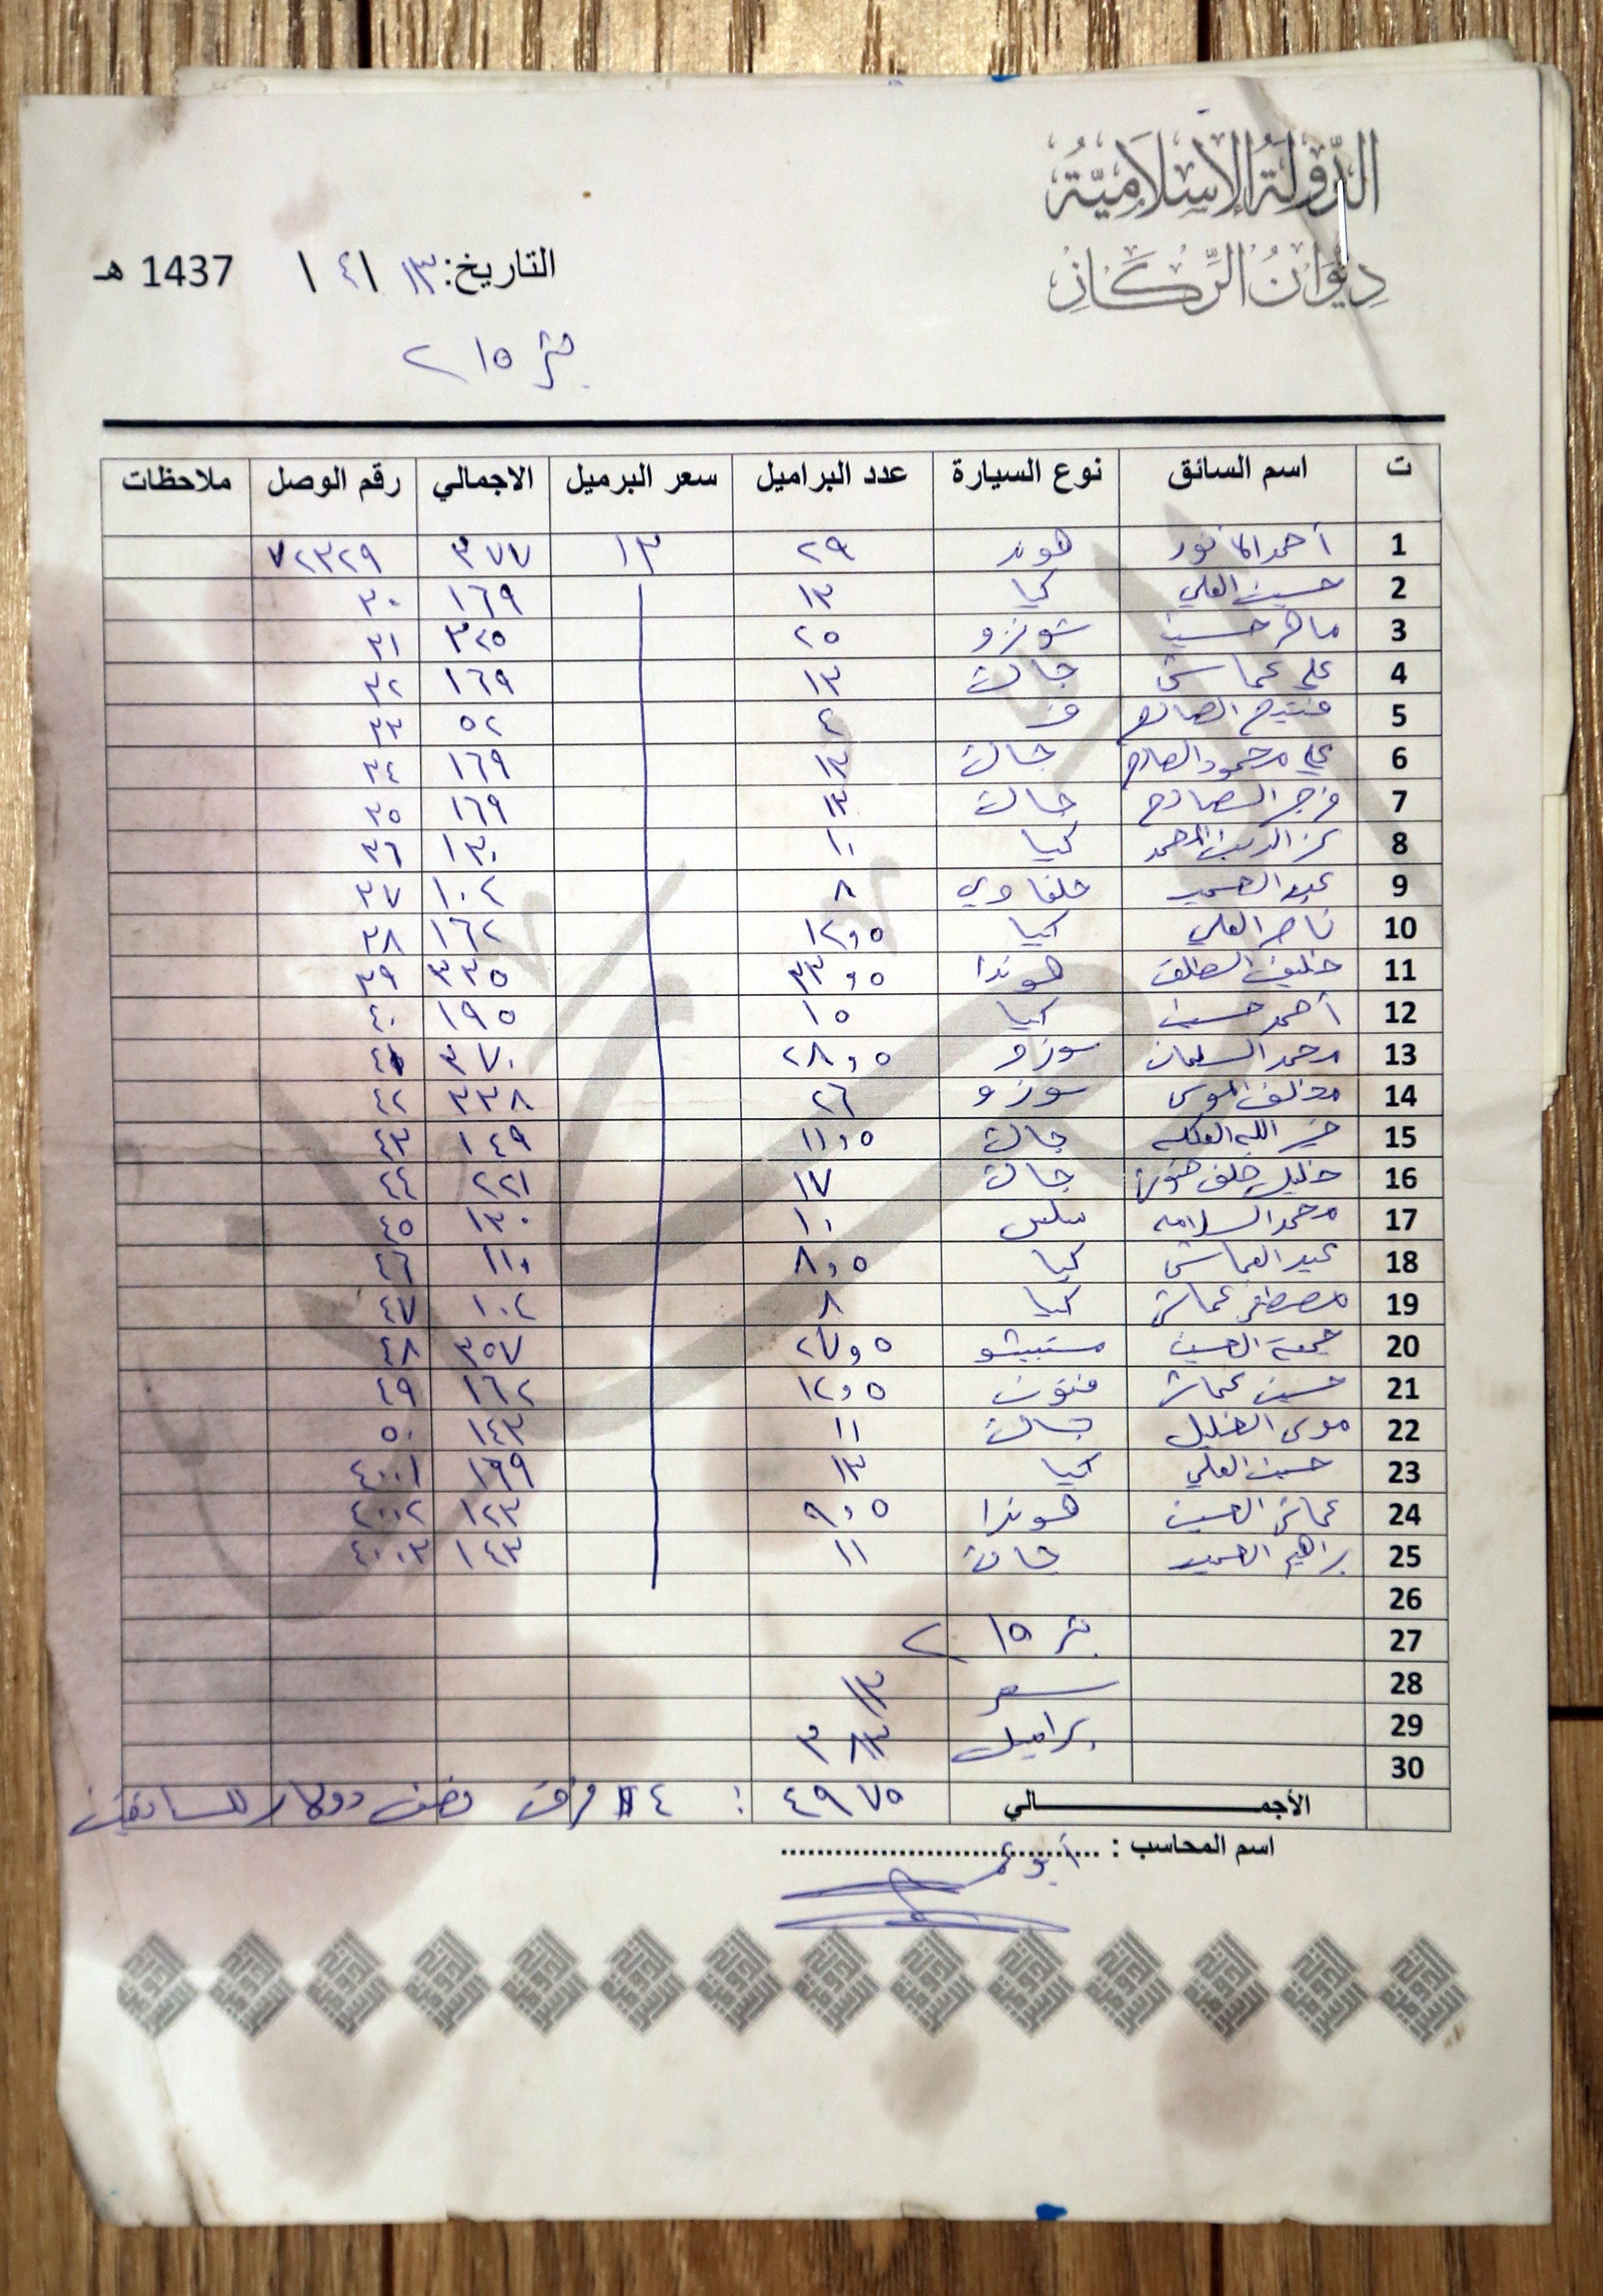 الدولة الإسلامية
ديوان الركاز
التاريخ: ١٣ / ٤ / 1437 هـ
بئر ٢١٥
ت اسم السائق نوع السيارة عدد البراميل سعر البرميل الاجمالي رقم الوصل ملاحظات
1 أحمد هوند ٢٩ ١٣ ٣٧٧ ٧٢٣٢٩
2 حسين العلي كيا ١٣ ١٦٩ ٣٠
3 ماهر حسين ٢٥ ٣٢٥ ٣١
4 علي عماش جاك ١٣ ١٦٩ ٣٢
5 الصالح ف ٤ ٥٢ ٣٣
6 علي محمود الصالح جاك ١٣ ١٦٩ ٣٤
7 فرج الصالح جاك ١٣ ١٦٩ ٣٥
8 كيا ١٠ ١٣٠ ٣٦
9 عبد الحميد ٨ ١٠٤ ٣٧
10 ناصر العلي كيا ١٢,٥ ١٦٢ ٣٨
11 خليف الخلف هوندا ٣٣٥ ٣٩
12 أحمد حسين كيا ١٥ ١٩٥ ٤٠
13 محمد السليمان سوزو ٢٨,٥ ٣٧٠ ٤١
14 مخلف الموسى سوزو ٢٦ ٣٣٨ ٤٢
15 خير الله العكله جاك ١١,٥ ١٤٩ ٤٣
16 خليل خلف جاك ١٧ ٢٢١ ٤٤
17 محمد السلامه ١٠ ١٣٠ ٤٥
18 عبد العماش كيا ٨,٥ ١١٠ ٤٦
19 مصطفى عماش كيا ٨ ١٠٤ ٤٧
20 جمعة الحسين ٢٧,٥ ٣٥٧ ٤٨
21 حسين عماش فوتون ١٢,٥ ١٦٢ ٤٩
22 موسى الخليل جاك ١١ ١٤٣ ٥٠
23 حسين العلي كيا ١٣ ١٦٩ ٤٠٠١
24 عماش الحسين هوندا ٩,٥ ١٢٣ ٤٠٠٢
25 براهيم الحميد جاك ١١ ١٤٣ ٤٠٠٣
26
27 بئر ٢١٥
28 سعر ١٣
29 براميل ٣٨٣
30
الأجمـــــــــالي ٤٩٧٥ : ٤ فرق نصف دولار للسائقين
اسم المحاسب : ................................